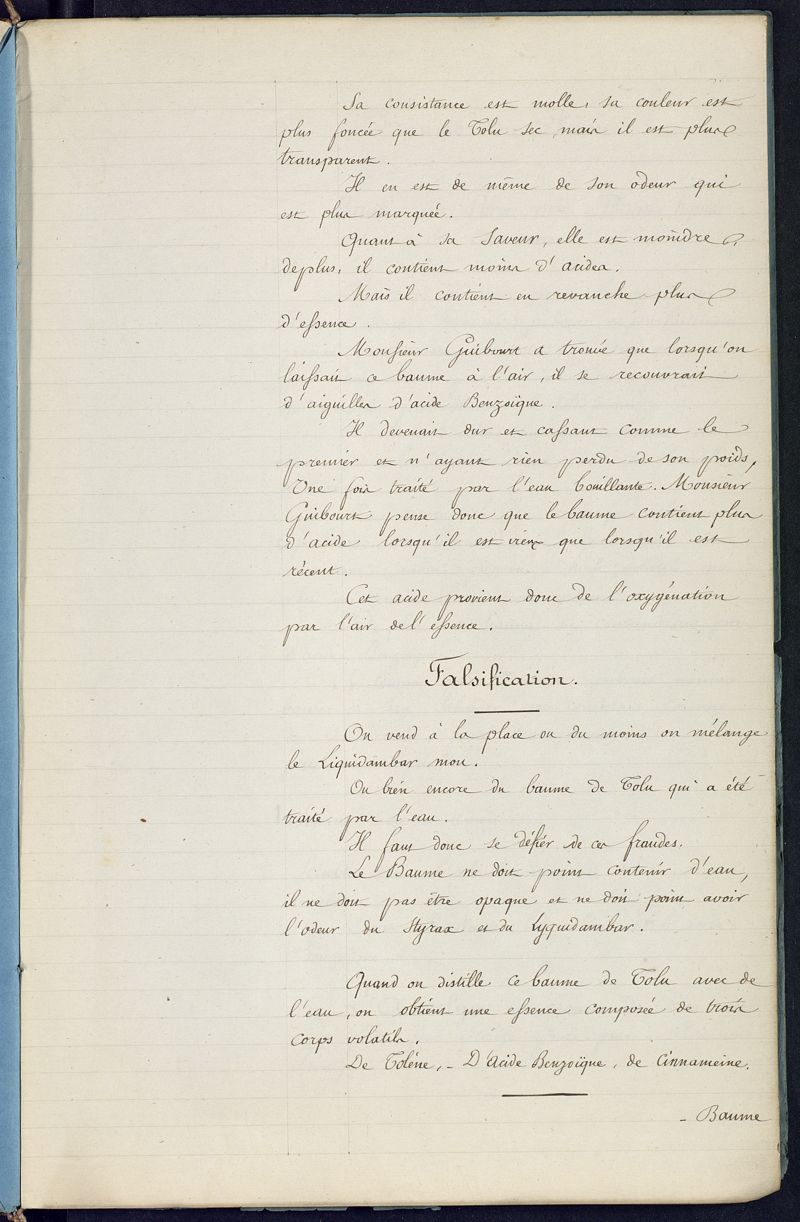 Sa consistance est molle, sa couleur est
plus foncée que le Tolu sec, mais il est plus
transparent.
Il en est de même de son odeur qui
est plus marquée.
Quant à sa Saveur, elle est moindre,
deplus, il contient moins d'acides.
Mais il contient en revanche plus
d'essence.
Monsieur Guibourt a trouvé que lorsqu'on
laissait ce baume à l'air, il se recouvrait
d'aiguilles d'acide Benzoïque.
Il devenait dur et cassant comme le
premier et n'ayant rien perdu de son poids,
Une fois traité par l'eau bouillante. Monsieur
Guibourt pense donc que le baume contient plus
d'acide lorsqu'il est vieux que lorsqu'il est
récent.
Cet acide provient donc de l'oxygénation
par l'air de l'essence.
Falsification.
On vend à la place ou du moins on mélange
le Liquidambar mou.
Ou bien encore du baume de Tolu qui a été
traité par l'eau.
Il faut donc se défier de ces fraudes.
Le Baume ne doit point contenir d'eau,
il ne doit pas être opaque et ne doit point avoir
l'odeur du Styrax et du Lyquidambar.
Quand on distille ce baume de Tolu avec de
l'eau, on obtient une essence composée de trois
corps volatils.
De Tolène, - D'Acide Benzoïque, de Cinnameine.
- Baume